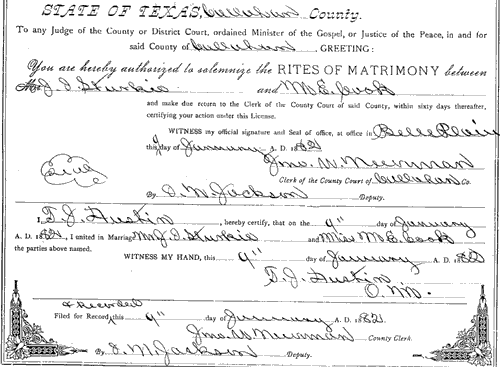 STATE OF TEXAS, Callahan County.
To any Judge of the County or District Court, ordained Minister of the Gospel, or Justice of the Peace, in and for
said County of Callahan, GREETING:
You are hereby authorized to solemnize the RITES OF MATRIMONY between
Mr J. I. Sturkie and M. E. Cook
and make due return to the Clerk of the County Court of said County, within sixty days thereafter,
certifying your action under this License.
WITNESS my official signature and Seal of office, at office in Belle Plain
this day of January A. D. 1882
Seal
Jno. W. Merriman
Clerk of the County Court of Callahan Co.
By I. M. Jackson Deputy.
I, T. J. Hustin, hereby certify, that on the 9" day of January
A. D. 1882, I united in Marriage Mr J. I. Sturkie and Miss M. E. Cook
the parties above named.
WITNESS MY HAND, this 9" day of January A. D. 1882
T. J. Hustin
& Recorded
Filed for Record this 9" day of January A. D. 1882.
Jno. W. Merriman County Clerk.
By I. M. Jackson Deputy.